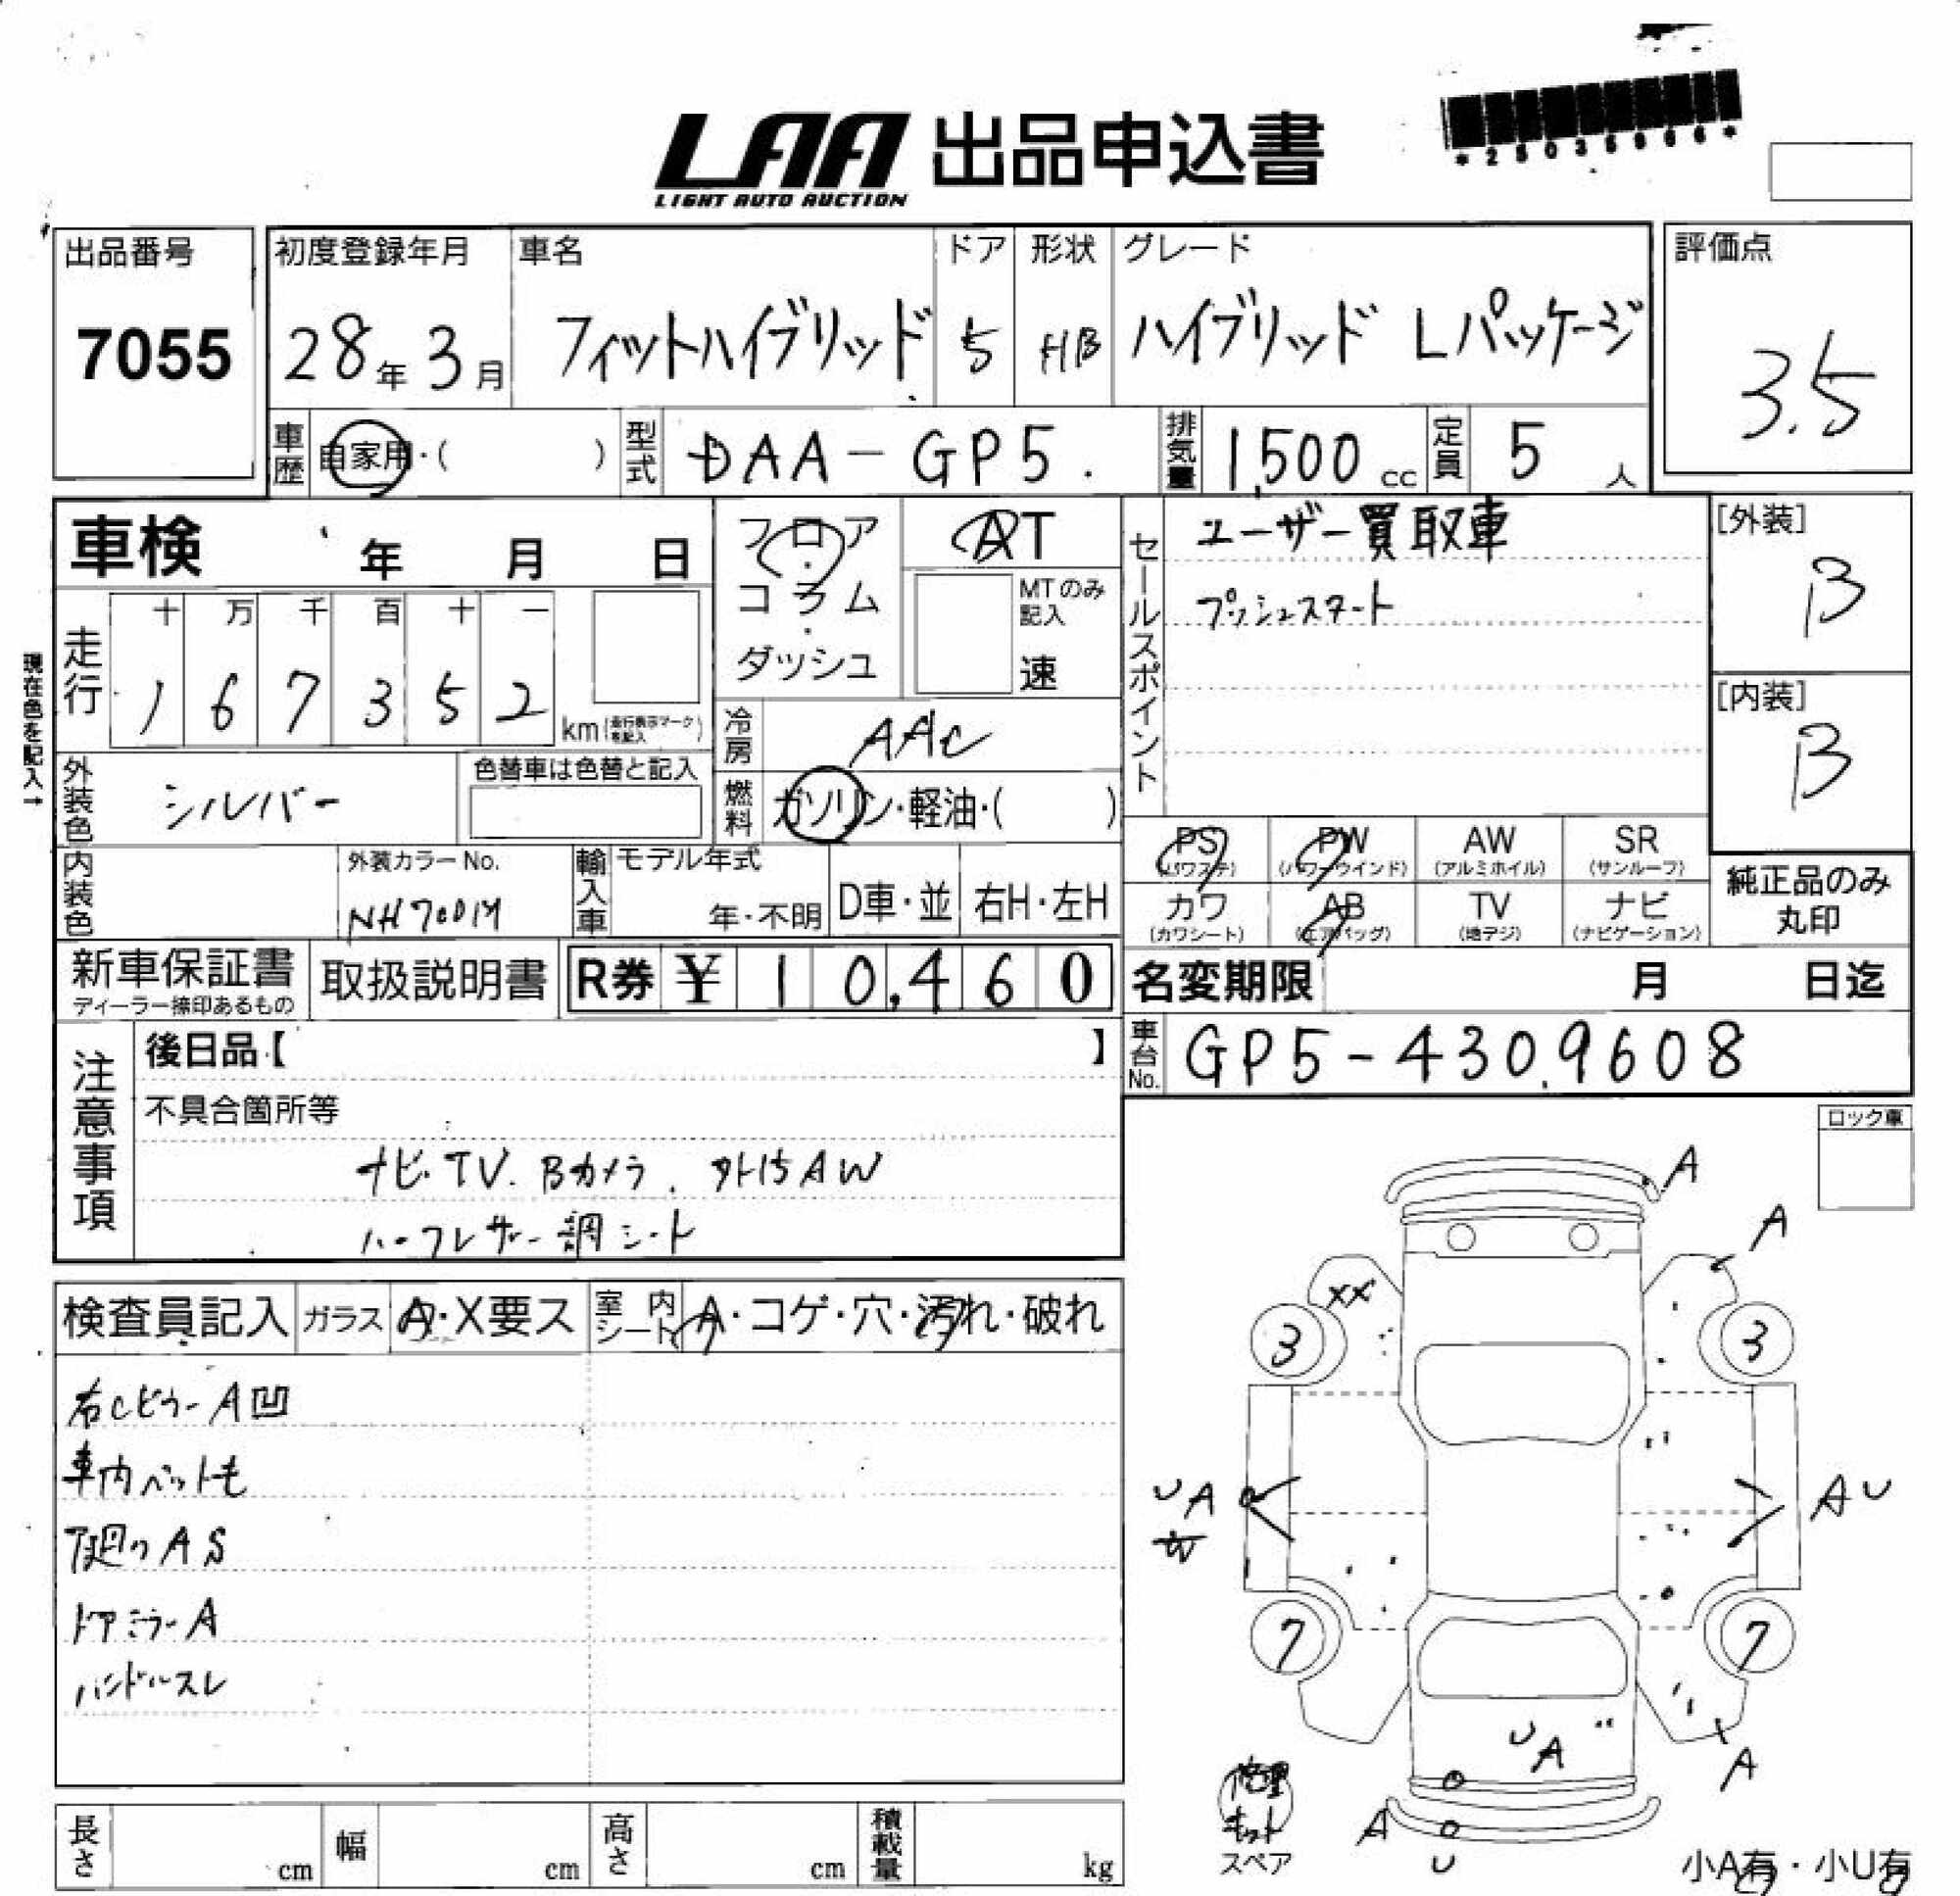 LAA 出品申込書
LIGHT AUTO AUCTION
出品番号
7055
初度登録年月
28年3月
車名
フィットハイブリッド
ドア
5
形状
HB
グレード
ハイブリッド Lパッケージ
評価点
3.5
車歴
自家用・( )
型式
DAA-GP5.
排気量
1,500 cc
定員
5 人
車検 年 月 日
フロア
・
コラム
・
ダッシュ
AT
MTのみ
記入
速
セールスポイント
ユーザー買取車
プッシュスタート
[外装]
B
[内装]
B
現在色を記入→
走行
十 万 千 百 十 一
1 6 7 3 5 2
km(走行表示マークを記入)
冷房
AAC
外装色
シルバー
色替車は色替と記入
燃料
ガソリン・軽油・( )
内装色
外装カラーNo.
NH700M
輸入車
モデル年式
年・不明
D車・並
右H・左H
PS
(パワステ)
PW
(パワーウインド)
AW
(アルミホイル)
SR
(サンルーフ)
カワ
(カワシート)
AB
(エアバッグ)
TV
(地デジ)
ナビ
(ナビゲーション)
純正品のみ
丸印
新車保証書
ディーラー捺印あるもの
取扱説明書
R券 ¥ 10,460
名変期限 月 日迄
車台No.
GP5-4309608
注意事項
後日品【 】
不具合箇所等
ナビ.TV.Bカメラ.外15AW
ハーフレザー調シート
ロック車
検査員記入
ガラス A・X要ス
室内シート A・コゲ・穴・汚れ・破れ
右Cピラー A凹
車内ペット毛
下廻り A S
ドアミラー A
ハンドルスレ
A
A
XX
3
3
U A
A U
7
7
U A
A
A
U
修理
キット
スペア
小A有・小U有
長さ cm
幅 cm
高さ cm
積載量 kg